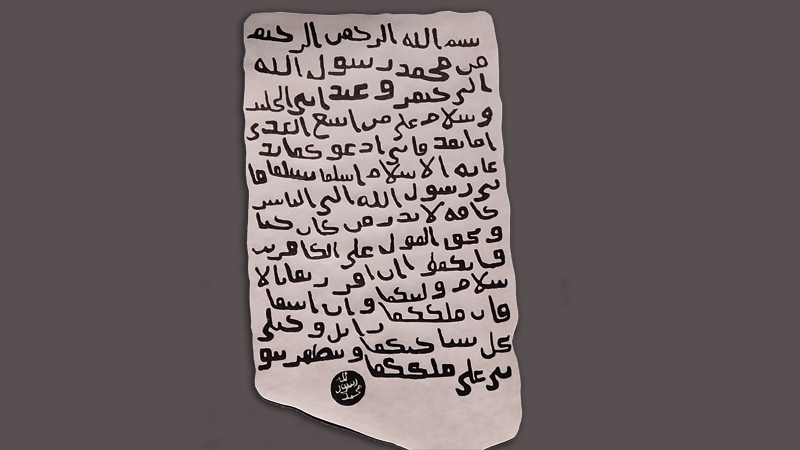 بسم الله الرحمن الرحيم
من محمد رسول الله
الى جيفر و عبد ابنى الجلند
و سلام على من اتبع الهدى
اما بعد فانى ادعو كما بد
عايه الاسلام اسلما تسلما فا
نى رسول الله الى الناس
كافه لانذر من كان حيا
و يحق القول على الكافرين
فانكما ان اقررتما بالا
سلام وليتكما وان ابيتما
فان ملككما زائل و خيلى
تحل بساحتكما و تظهر نبو
تى على ملككما
الله
رسول
محمد